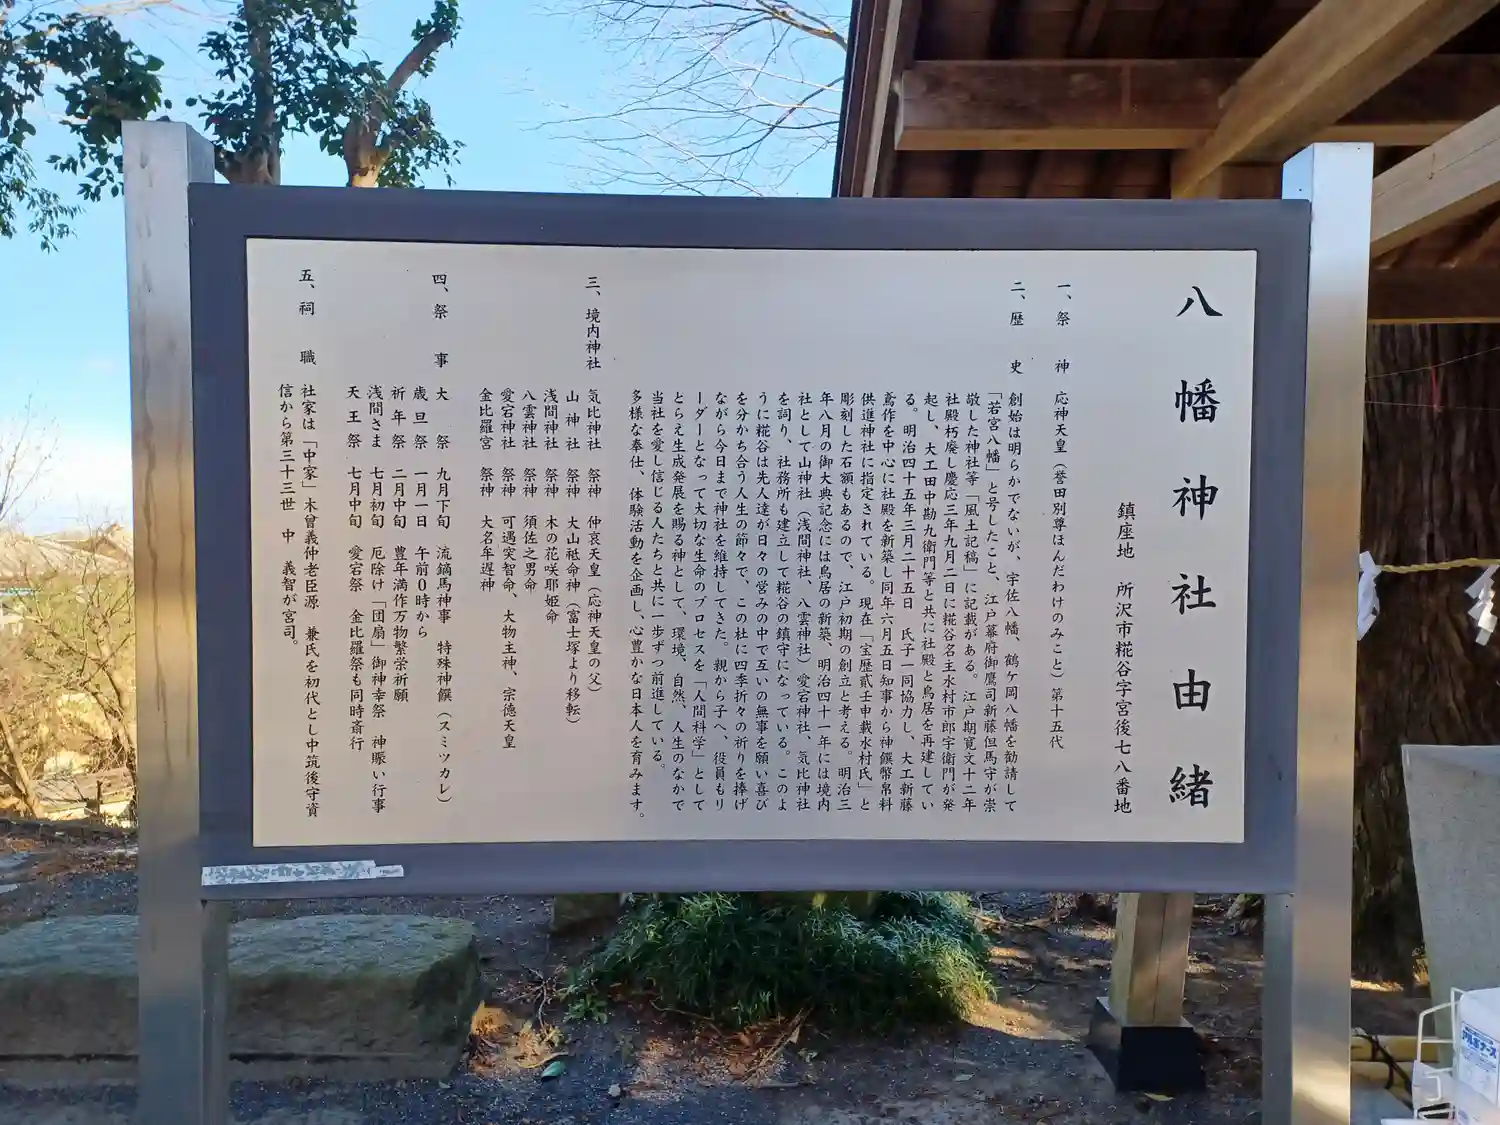 八幡神社由緒
鎮座地 所沢市糀谷字宮後七八番地
一、祭 神 応神天皇(誉田別尊ほんだわけのみこと)第十五代
二、歴 史 創始は明らかでないが、宇佐八幡、鶴ケ岡八幡を勧請して
「若宮八幡」と号したこと、江戸幕府御鷹司新藤但馬守が崇
敬した神社等「風土記稿」に記載がある。江戸期寛文十二年
社殿朽廃し慶応三年九月二日に糀谷名主水村市郎宇衛門が発
起し、大工田中勘九衛門等と共に社殿と鳥居を再建してい
る。明治四十五年三月二十五日 氏子一同協力し、大工新藤
鳶作を中心に社殿を新築し同年六月五日知事から神饌幣帛料
供進神社に指定されている。現在「宝歴貳壬申載水村氏」と
彫刻した石額もあるので、江戸初期の創立と考える。明治三
年八月の御大典記念には鳥居の新築、明治四十一年には境内
社として山神社(浅間神社、八雲神社)愛宕神社、気比神社
を祠り、社務所も建立して糀谷の鎮守になっている。このよ
うに糀谷は先人達が日々の営みの中で互いの無事を願い喜び
を分かち合う人生の節々で、この社に四季折々の祈りを捧げ
ながら今日まで神社を維持してきた。親から子へ、役員もリ
ーダーとなって大切な生命のプロセスを「人間科学」として
とらえ生成発展を賜る神として、環境、自然、人生のなかで
当社を愛し信じる人たちと共に一歩ずつ前進している。
多様な奉仕、体験活動を企画し、心豊かな日本人を育みます。
三、境内神社 気比神社 祭神 仲哀天皇(応神天皇の父)
山神社 祭神 大山祗命神(富士塚より移転)
浅間神社 祭神 木の花咲耶姫命
八雲神社 祭神 須佐之男命
愛宕神社 祭神 可遇突智命、大物主神、宗徳天皇
金比羅宮 祭神 大名牟遅神
四、祭 事 大 祭 九月下旬 流鏑馬神事 特殊神饌(スミツカレ)
歳旦祭 一月一日 午前0時から
祈年祭 二月中旬 豊年満作万物繁栄祈願
浅間さま 七月初旬 厄除け「団扇」御神幸祭 神賑い行事
天王祭 七月中旬 愛宕祭 金比羅祭も同時斎行
五、祠 職 社家は「中家」木曾義仲老臣源 兼氏を初代とし中筑後守資
信から第三十三世 中 義智が宮司。